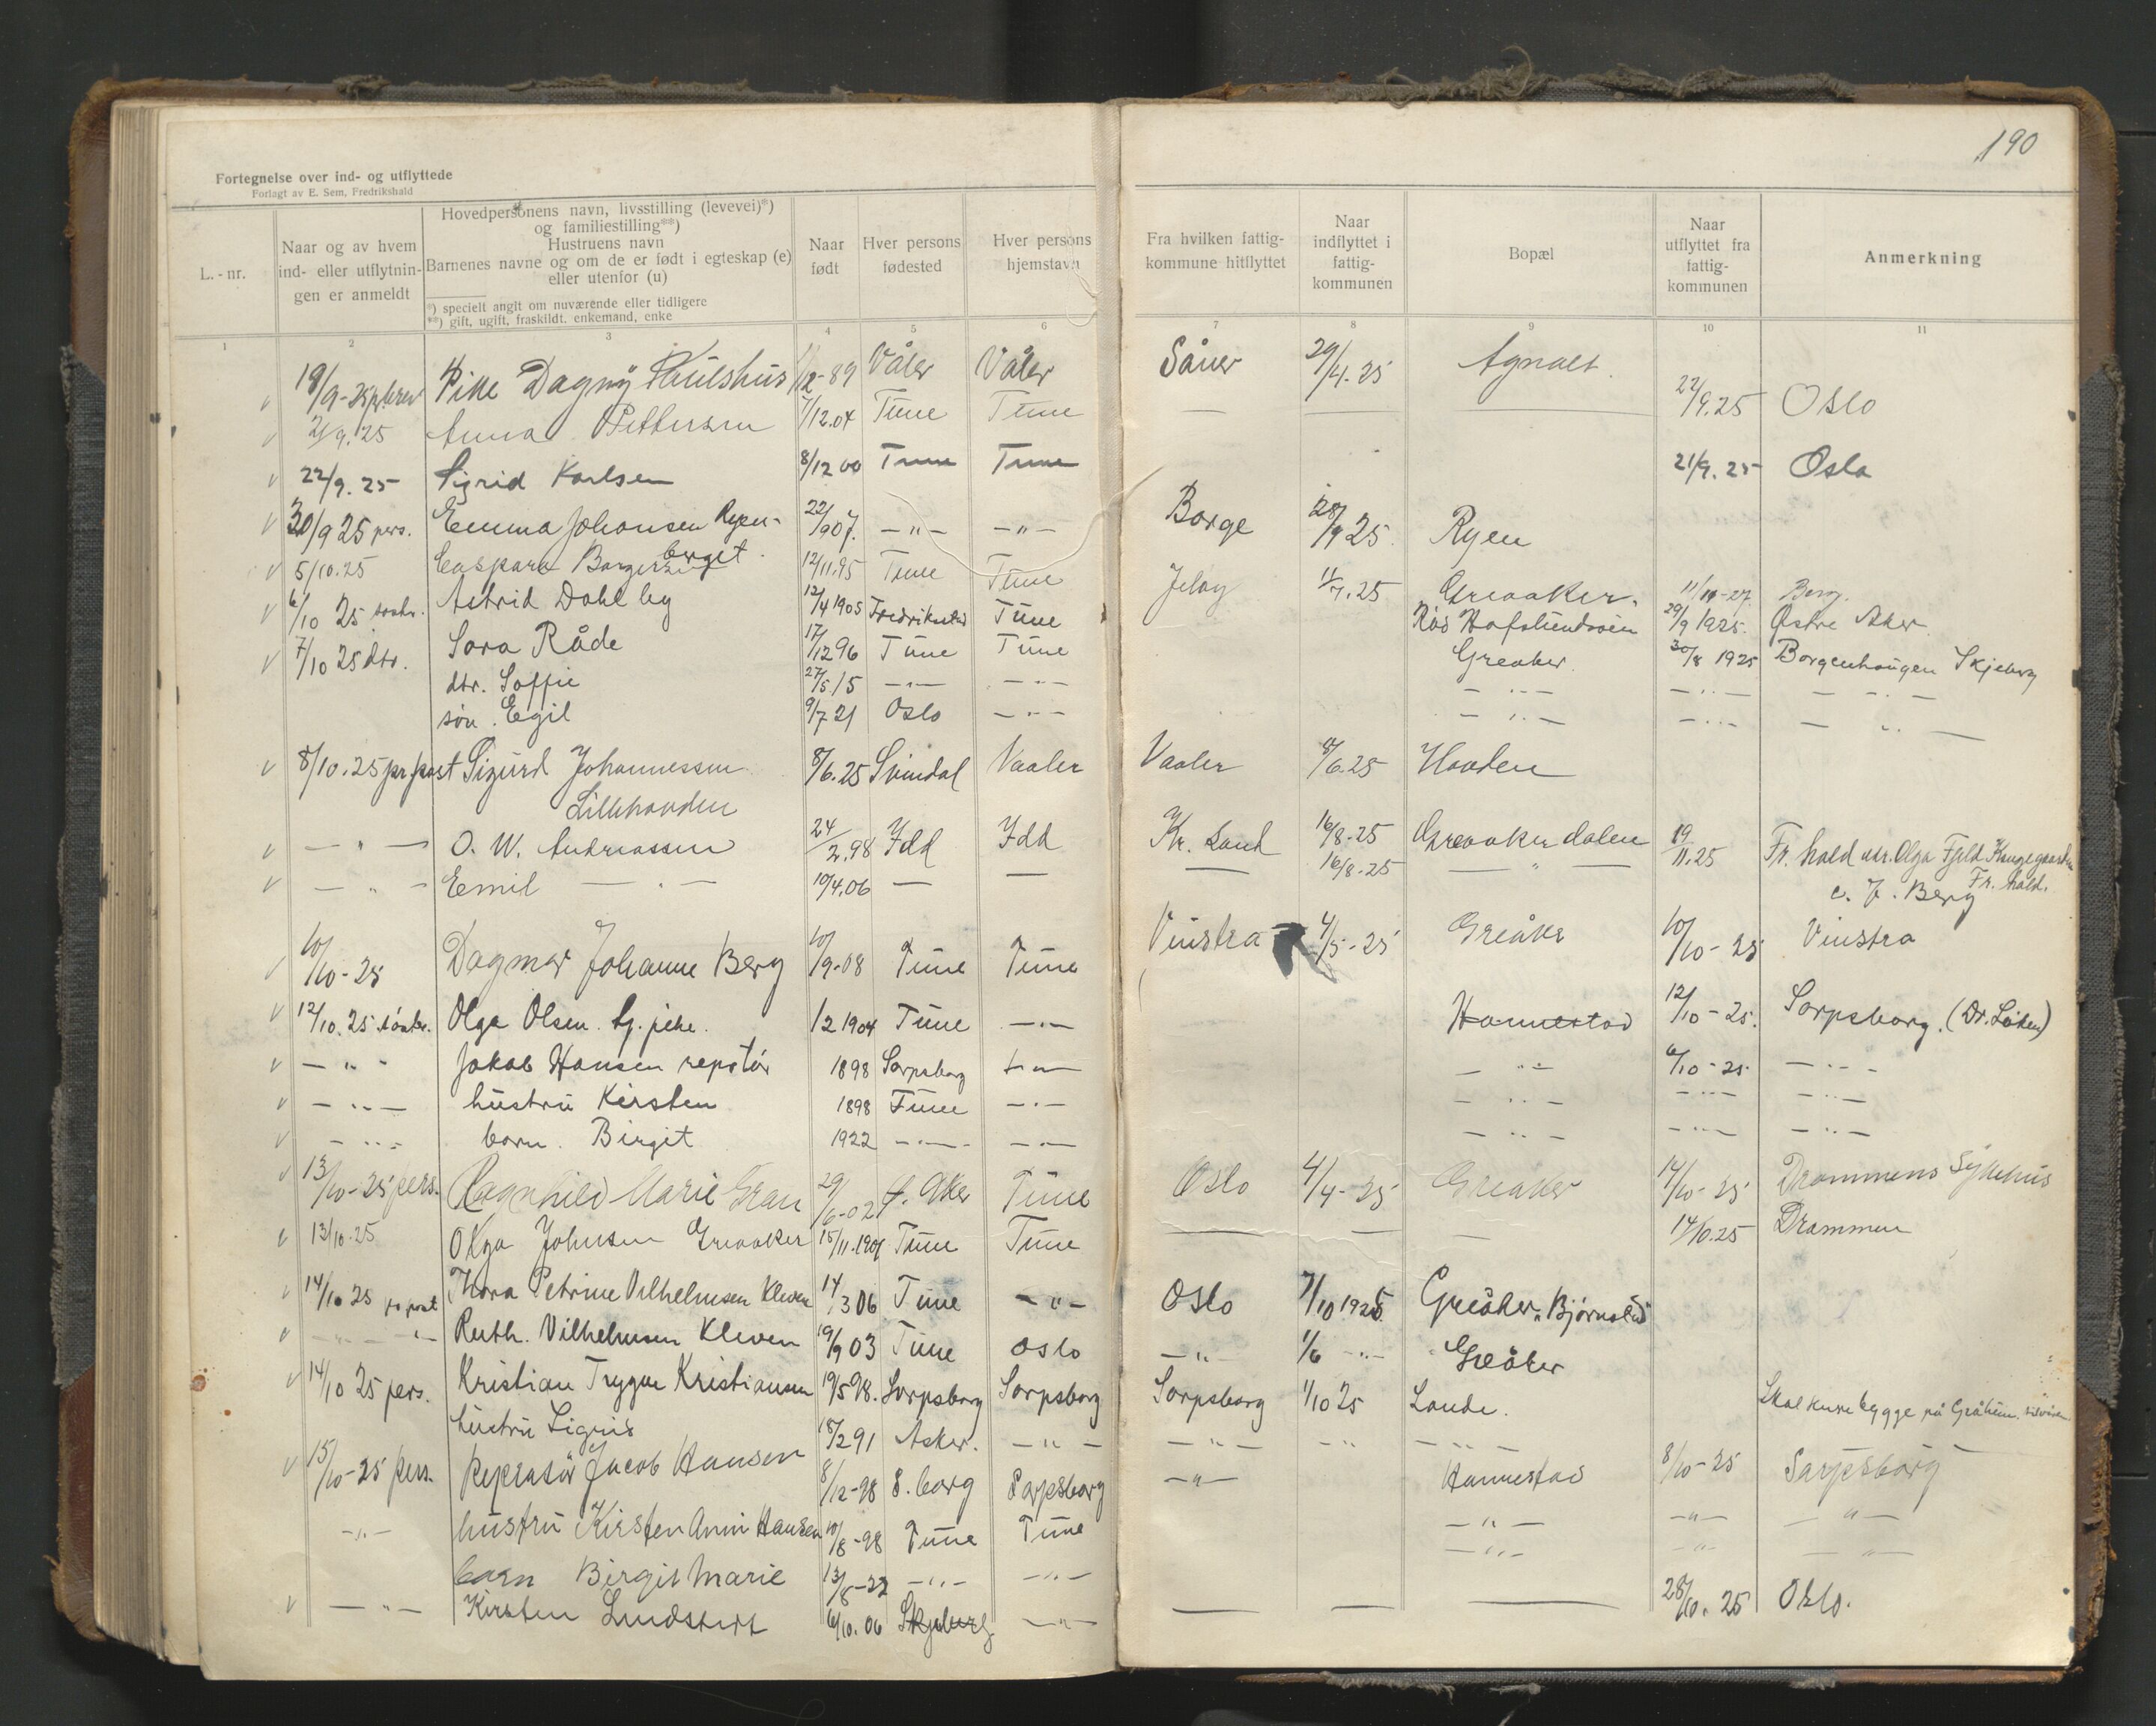 190
Fortegnelse over ind- og utflyttede
Forlagt av E. Sem, Fredrikshald
L.-nr.
Naar og av hvem ind- eller utflytnin- gen er anmeldt
Hovedpersonens navn, livsstilling (levevei)*)
og familiestilling**)
Hustruens navn
Barnenes navne og om de er født i egteskap (e)
eller utenfor (u)
*) specielt angit om nuværende eller tidligere
**) gift, ugift, fraskildt. enkemand, enke
Naar født
Hver persons fødested
Hver persons hjemstavn
Fra hvilken fattig- kommune hitflyttet
Naar indflyttet i fattig- kommunen
Bopæl
Naar utflyttet fra fattig- kommunen
Anmerkning
1 2 3 4 5 6 7 8 9 10 11
18/9-25 pr brev Pike Dagny 1/12-89 Våler Våler Såner 29/4.25 Agnalt
2/9.25 Anna Pettersen 7/12.04 Tune Tune — — — 22/9.25 Oslo
22/9.25 Sigrid Karlsen 8/12 00 Tune Tune 21/9.25 Oslo
30/9 25 pers. Emma Johansen Ryen- 22/9 07. —"— —"— Borge 28/9 25. Ryen
berget.
5/10.25 Caspara 12/11.95 Tune Tune Jeløy 11/7.25 Greaaker. 11/10-27 Berg.
6/10 25 Astrid Dahl by 12/4 1905 Fredrikstad Tune Hafslundsveien 29/9 1925. Østre Aker
7/10 25 dtr. Sara Råde 17/12 96 Tune Tune Greaker. 30/8 1925 Borgenhaugen Skjeberg
dtr. Soffie 27/5 15 —"— —"— —"— —"— —"—
søn. Egil 9/7 21 Oslo —"— —"— —"— —"—
8/10.25 pr. post Sigurd Johannessen 8/6.25 Svindal Vaaler Vaaler 8/6.25 Hauden
Lillehauden
—"— O. W. Andreassen 24/2.98 Idd Idd Kr. Sand 16/8-25 Greaaker dalen 19/11.25 Fr. hald adr. Olga Fjeld Kongegaarden
Fr. hald.
—"— Emil —"— 10/4.06 — — — 16/8-25 —"— c. F. Berg
10/10-25 Dagmar Johanne Berg 10/9-08 Tune Tune Vinstra 4/5-25 Greåker 10/10-25 Vinstra
12/10.25 Olga Olsen. tj. pike. 1/2 1904 Tune —"— Hannestad 12/10-25. Sarpsborg. (Dr. Løken)
—"— Jakob Hansen repstør 1898 Sarpsborg —"— —"— 6/10-25 —"—
—"— hustru Kirsten 1898 Tune —"— —"— —"— —"—
—"— barn. Birgit 1922 —"— —"— —"— —"— —"—
13/10-25 pers. Ragnhild Marie Gran 29/6-02 Ø. Aker Tune Oslo 4/4-25 Greåker 14/10-25 Drammens Sykehus
13/10.25 Olga Johnsen Greaaker 15/11.1901 Tune Tune — — — 14/10.25 Drammen
14/10 25 pr post Thora Petrine Vilhelmsen Kleven 14/3 06 Tune —"— Oslo 7/10 1925 Greåker "Bjørnstad"
—"— Ruth. Vilhelmsen Kleven 19/9 03 Tune Oslo —"— 1/6 —"— Greåker
14/10 25 pers. Kristian Trygve Kristiansen 19/5 98. Sarpsborg Sarpsborg Sarpsborg 1/10 25 Lande. Skal kun bygge på Gråheim
hustru Sigrid 18/2 91 Asker. —"— —"— —"— —"—
15/10-25 pers. Reperatør Jacob Hansen 8/12-98 S.borg Sarpsborg —"— Hannestad 8/10-25 Sarpsborg
—"— hustru Kirsten Anni Hansen 10/8-98 Tune Tune —"— —"— —"—
barn Birgit Marie 13/8-22 —"— —"— —"— —"— —"—
—"— Kirsten 6/10.06 Skjeberg —"— — — — 28/10.25 Oslo.